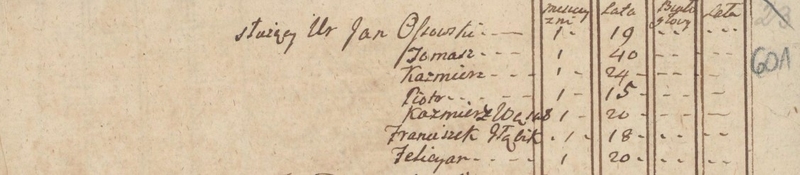 męszczyzni Lata Białogłowy Lata 23
służący Ur Jan Ossowski - - 1 - 19 - - - - -
Tomasz - - - 1 40 - - -
Kazmierz - - - 1 - 24 - - - -
Piotr - - - 1 - 15 - - - -
Kazmierz Wąsal 1 - 20 - - -
Franciszek Głąbik - 1 - 18 - - - -
Felicyan - - - 1 20 - - - - -
601